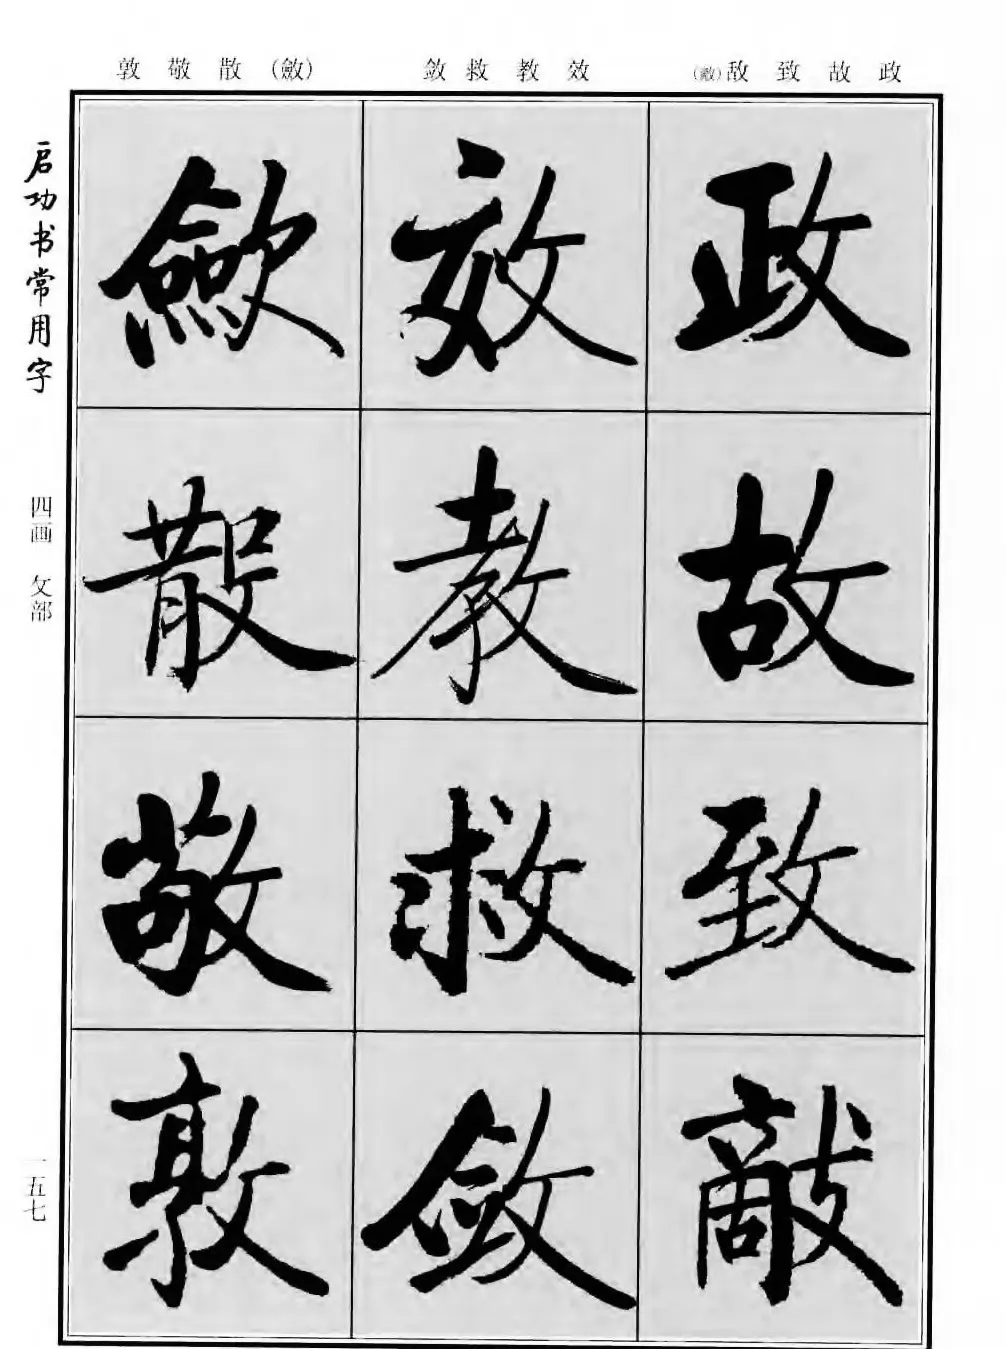 政故致敌(敵)
效教救敛
(歛)散敬敦
政故致敵
效教救敛
歛散敬敦
启功书常用字
四画 攵部
一五七